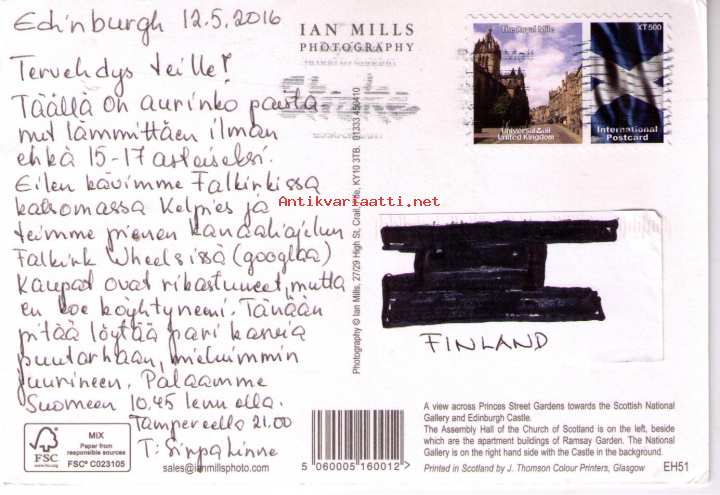 Edinburgh 12.5.2016
Tervehdys teille!
Täällä on aurinko paista
nut lämmittäen ilman
ehkä 15-17 asteiseksi.
Eilen kävimme Falkirkissa
katsomassa Kelpies ja
teimme pienen kanaaliajelun
Falkirk Wheelsissä (googlaa)
Kaupat ovat rikastuneet, mutta
en koe köyhtyneeni. Tänään
pitää löytää pari kasvia
puutarhaan, mieluimmin
juurineen. Palaamme
Suomeen 10.45 lennolla.
Tampereella 21.00
T: Sirpa
IAN MILLS
PHOTOGRAPHY
The Royal Mile
Universal Mail
United Kingdom
XT500
International
Postcard
Antikvariaatti.net
Photography © Ian Mills, 27/29 High St, Crail, Fife, KY10 3TB. 01333 450410
FINLAND
A view across Princes Street Gardens towards the Scottish National
Gallery and Edinburgh Castle.
The Assembly Hall of the Church of Scotland is on the left, beside
which are the apartment buildings of Ramsay Garden. The National
Gallery is on the right hand side with the Castle in the background.
Printed in Scotland by J. Thomson Colour Printers, Glasgow
EH51
FSC
www.fsc.org
MIX
Paper from
responsible sources
FSC® C023105
sales@ianmillsphoto.com
5 060005 160012 >